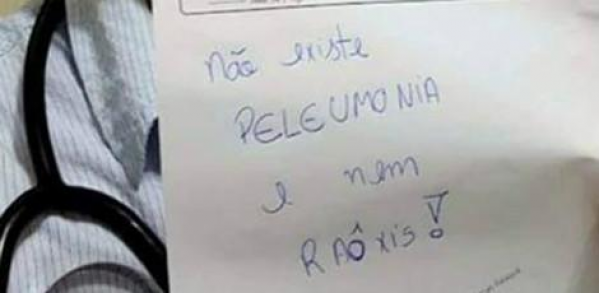 não existe
PELEUMONIA
e nem
RAÔXIS!